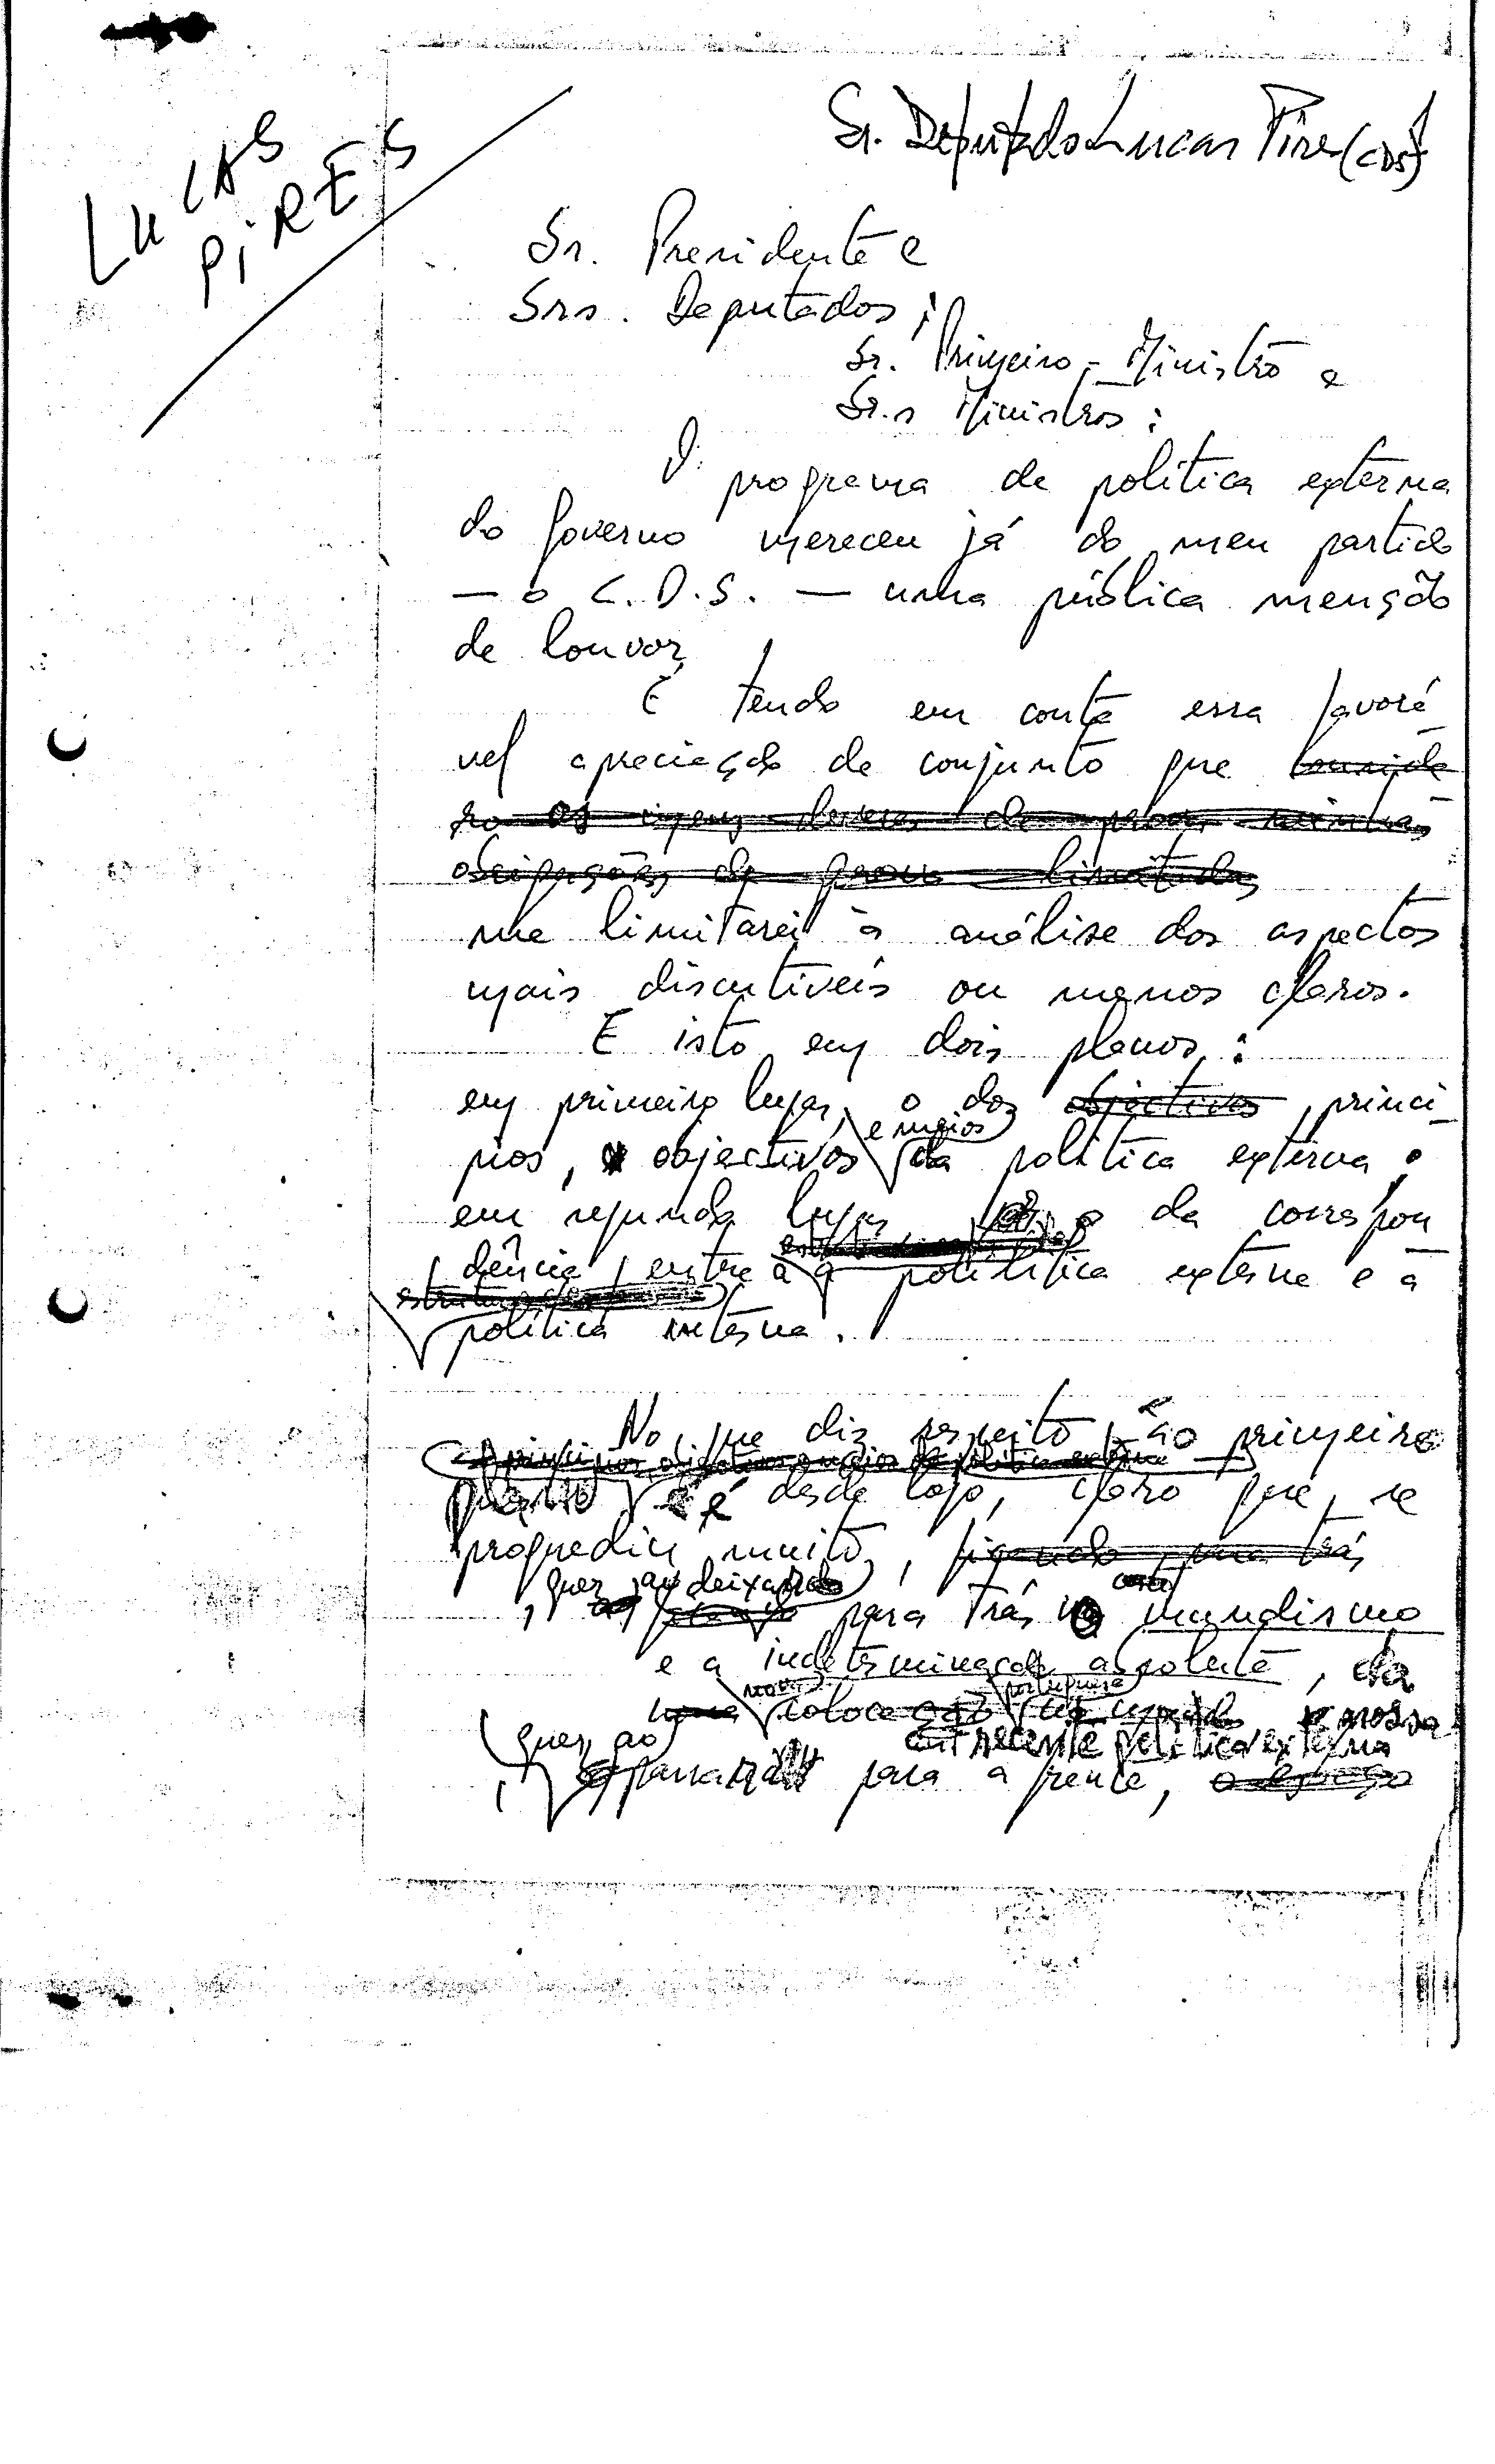 LUCAS
PIRES
Sr. Deputado Lucas Pires (CDS)
Sr. Presidente e
Srs. Deputados;
Sr. Primeiro-Ministro e
Sr.s Ministros:
O programa de política externa
do Governo mereceu já do meu partido
— o C.D.S. — uma pública menção
de louvor.
É tendo em conta essa favorá
vel apreciação de conjunto que
me limitarei à análise dos aspectos
mais discutíveis ou menos claros.
E isto em dois planos:
em primeiro lugar, o dos objectivos princí-
e meios
pios, objectivos da política externa;
em segundo lugar o da correspon
dência entre a política externa e a
política interna.
No que diz respeito ao primeiro
princípios, objectivos e meios da política externa
é desde logo, claro que, se
progrediu muito, ficando para trás
, quer ao deixar
para trás o mundismo
e a indeterminação absoluta, da
nova portuguesa
colocação nossa
quer ao recente política externa
passar para a frente,